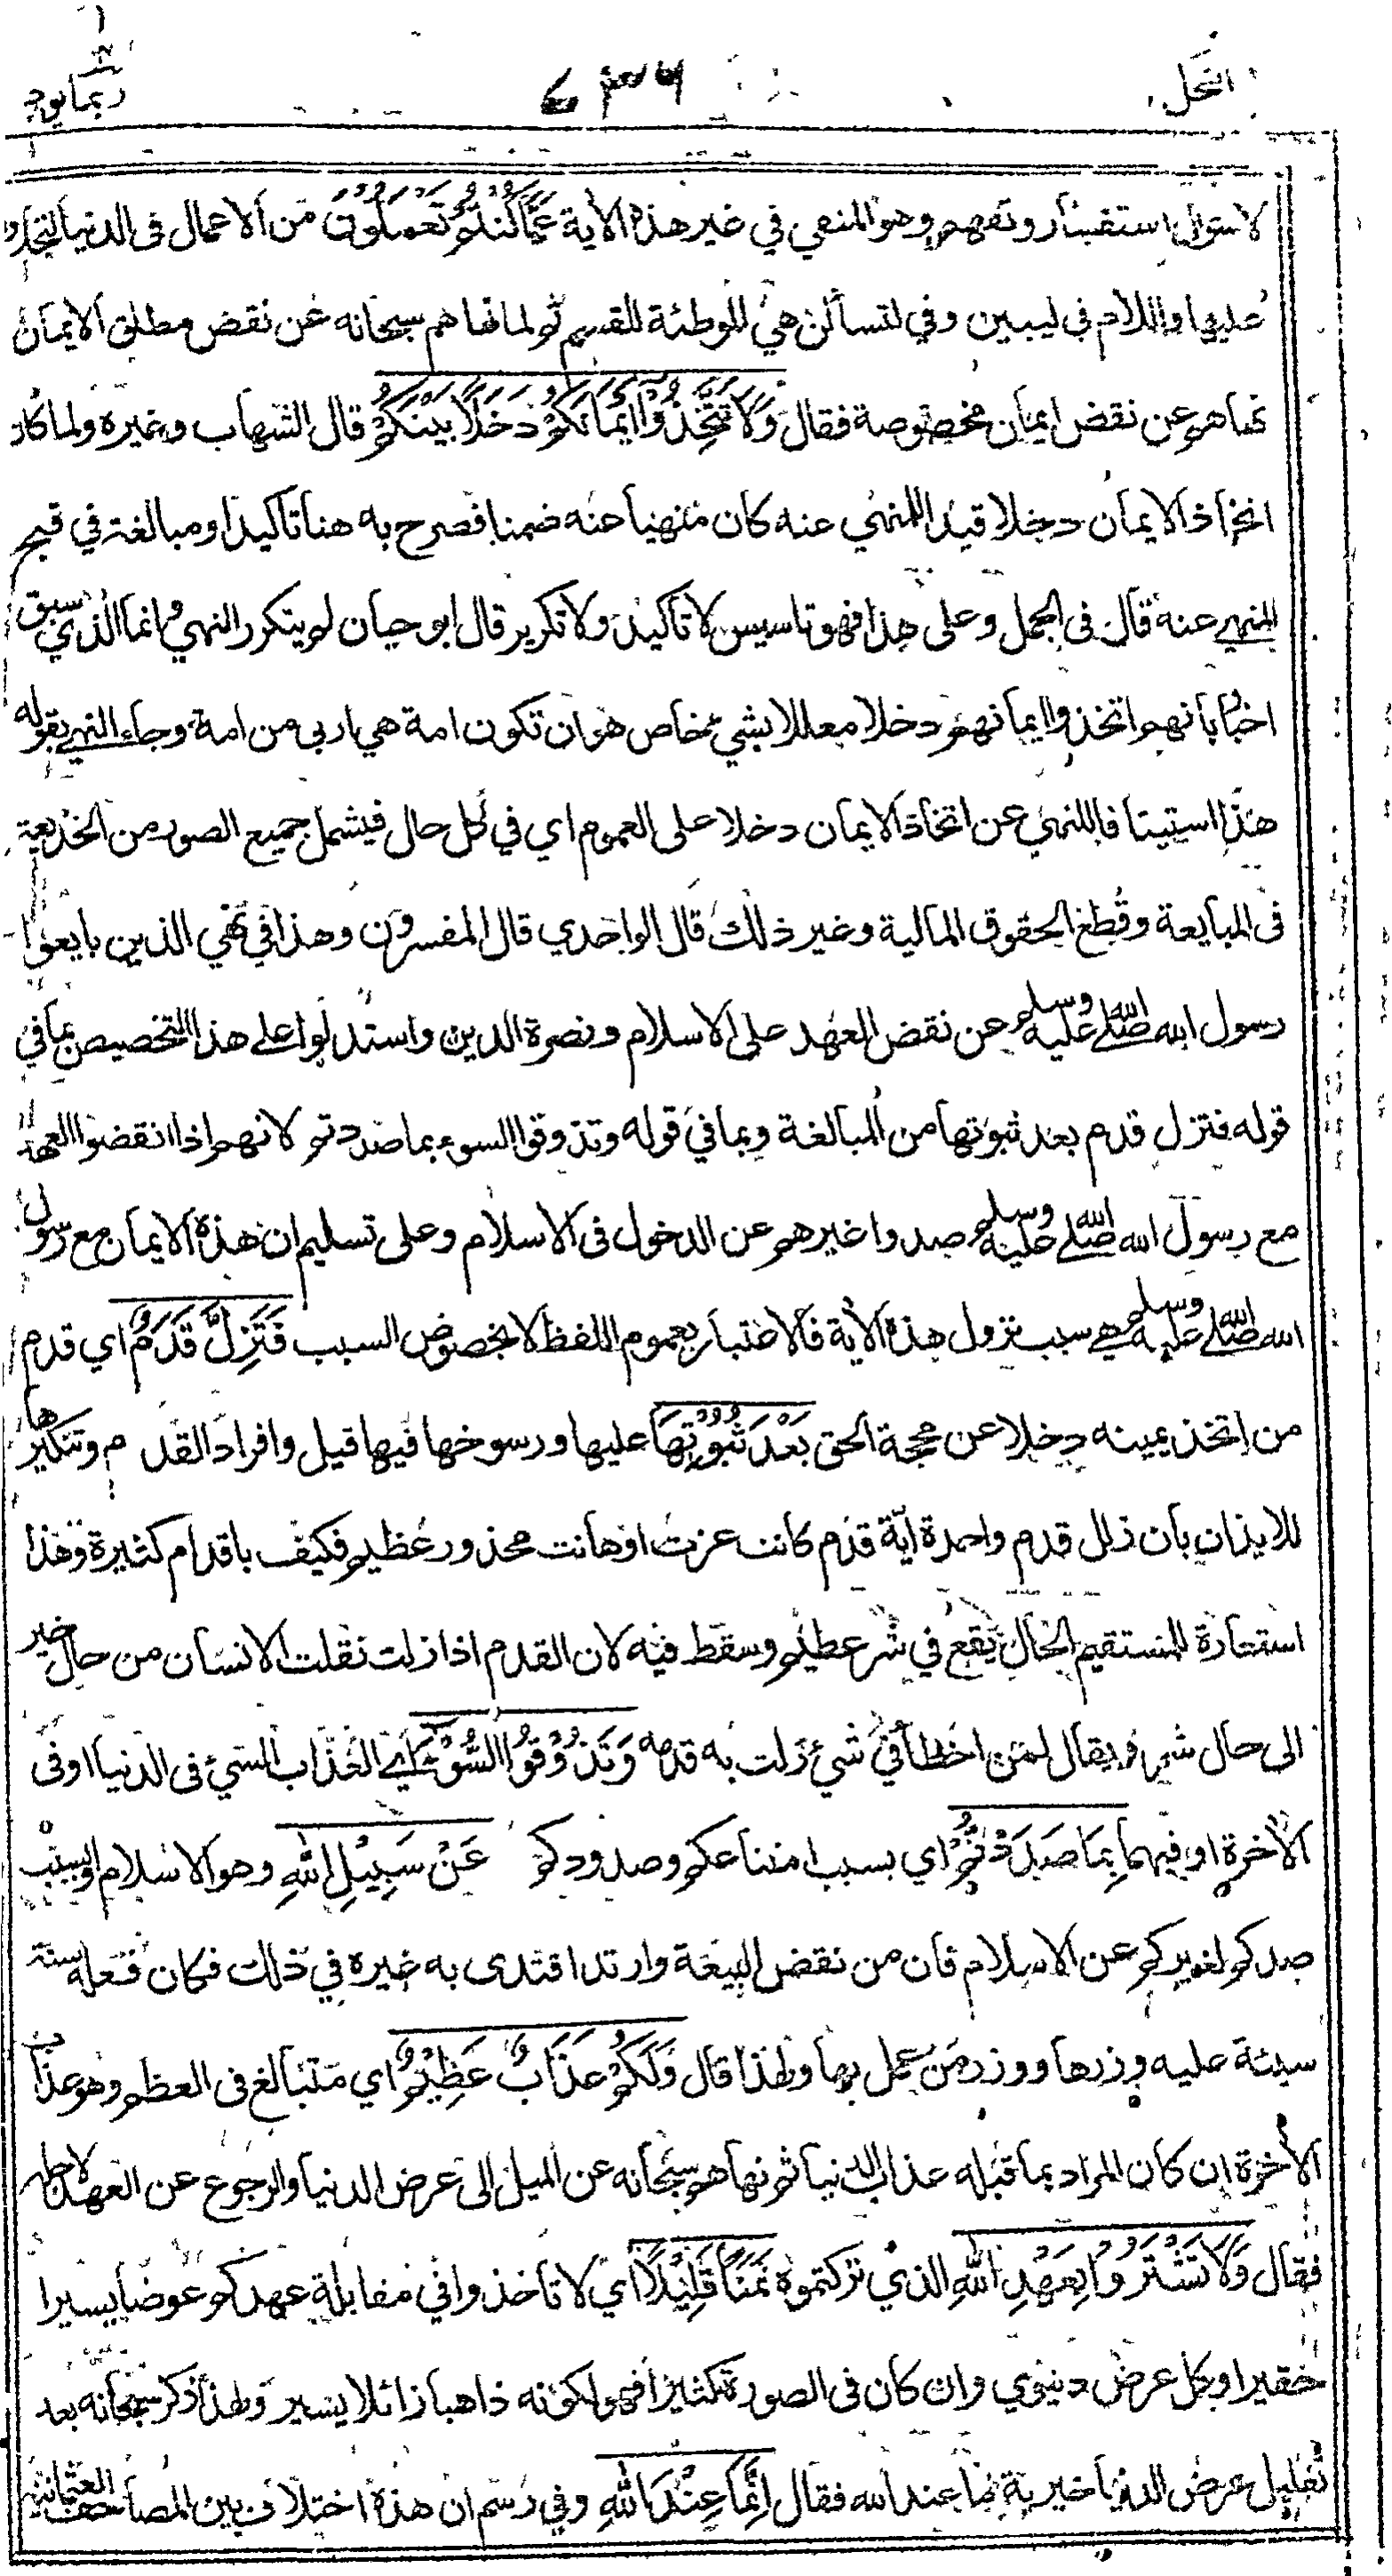 النحل
٧٣٦
ربما يود
لا سؤال استفسار وتفهم وهو المنفي في غير هذه الآية عَمَّا كُنْتُمْ تَعْمَلُوْنَ من الاعمال في الدنيا
عليها واللام في ليبين وفي لتسألن هي الموطئة للقسم ثم لما نهاهم سبحانه عن نقض مطلق الايمان
نهاهم عن نقض ايمان مخصوصة فقال وَلَا تَتَّخِذُوْا اَيْمَانَكُمْ دَخَلًا بَيْنَكُمْ قال الشهاب وغيره ولما كان
اتخاذ الايمان دخلا قيدا للمنهي عنه كان منهيا عنه ضمنا فصرح به هنا تاكيدا ومبالغة في قبح
المنهي عنه قال في الجمل وعلى هذا فهو تاسيس لا تأكيد ولا تكرير قال ابو حيان لم يتكرر النهي وانما الذي سبق
اخبار بانهم اتخذوا ايمانهم دخلا معللا بشيئ خاص هو ان تكون امة هي اربى من امة وجاء النهي بقوله
هذا استينافا للنهي عن اتخاذ الايمان دخلا على العموم اي في كل حال فيشمل جميع الصور من الخديعة
في المبايعة وقطع الحقوق المالية وغير ذلك قال الواحدي قال المفسرون وهذا في نهي الذين بايعوا
رسول الله صلى الله عليه وسلم عن نقض العهد على الاسلام ونصرة الدين واستدلوا على هذا التخصيص بما في
قوله فتزل قدم بعد ثبوتها من المبالغة وبما في قوله وتذوقوا السوء بما صددتم لانهم اذا نقضوا العهد
مع رسول الله صلى الله عليه وسلم صدوا غيرهم عن الدخول في الاسلام وعلى تسليم ان هذه الايمان مع رسول
الله صلى الله عليه وسلم هي سبب نزول هذه الآية فالاعتبار بعموم اللفظ لا بخصوص السبب فَتَزِلَّ قَدَمٌ اي قدم
من اتخذ يمينه دخلا عن محجة الحق بَعْدَ ثُبُوْتِهَا عليها ورسوخها فيها قيل وافراد القدم وتنكيرها
للايذان بان زلل قدم واحدة اية قدم كانت عزت او هانت محذور عظيم فكيف باقدام كثيرة وهذا
استعارة للمستقيم الحال يقع في شر عظيم وسقط فيه لان القدم اذا زلت نقلت الانسان من حال خير
الى حال شر ويقال لمن اخطأ في شيئ زلت به قدمه وَتَذُوْقُوْا السُّوْءَ اي العذاب السيئ في الدنيا او في
الآخرة او فيهما بِمَا صَدَدْتُّمْ اي بسبب امتناعكم وصدودكم عَنْ سَبِيْلِ اللّٰهِ وهو الاسلام او بسبب
صدكم لغيركم عن الاسلام فان من نقض البيعة وارتد اقتدى به غيره في ذلك فكان فعله سنة
سيئة عليه وزرها ووزر من عمل بها ولهذا قال وَلَكُمْ عَذَابٌ عَظِيْمٌ اي متبالغ في العظم وهو عذاب
الآخرة ان كان المراد بما قبله عذاب الدنيا ثم نهاهم سبحانه عن الميل الى عرض الدنيا والرجوع عن العهد لاجله
فقال وَلَا تَشْتَرُوْا بِعَهْدِ اللّٰهِ الذي تركتموه ثَمَنًا قَلِيْلًا اي لا تأخذوا في مقابلة عهدكم عوضا يسيرا
حقيرا وكل عرض دنيوي وان كان في الصورة كثيرا فهو لكونه ذاهبا زائلا يسير ولهذا ذكر سبحانه بعد
تقليل عرض الدنيا خيرية ما عند الله فقال اِنَّمَا عِنْدَ اللّٰهِ وفي رسم ان هذه اختلاف بين المصاحف العثمانية